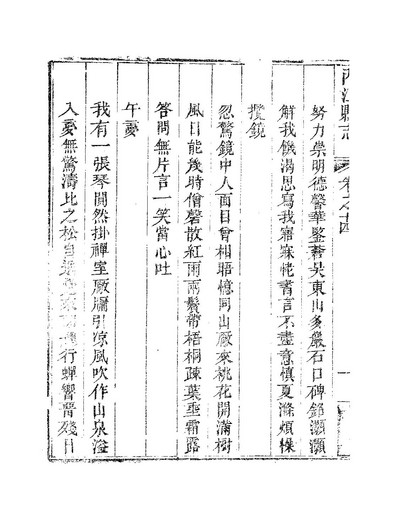 縣志 卷之十四
努力崇明德馨華鑒 吳東山多巖石口碑鐫灝灝
解我饑渴思寫我寤寐 書言不盡意慎夏滌煩
攬鏡
忽驚鏡中人面目曾相 憶同山厰來桃花開滿樹
風日能幾時僧磬散紅雨兩鬢帶梧桐疎葉垂霜露
答問無片言一笑當心吐
午憂
我有一張琴閒然掛禪室厰牖引凉風吹作山泉溢
入憂無驚濤比之松 行蟬響 殘日